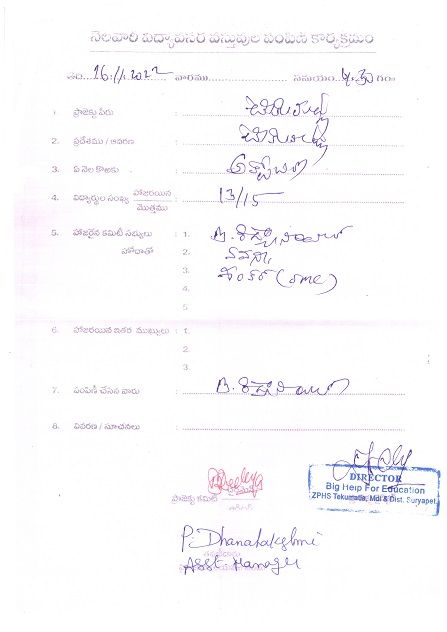 నెలవారి విద్యావసర వస్తువుల పంపిణి కార్యక్రమం
తేది 16.11.2022 వారము సమయం 4.30 గం॥
1. ప్రాజెక్టు పేరు
2. ప్రదేశము / ఆవరణ
3. ఏ నెల కొఱకు అక్టోబర్
4. విద్యార్థుల సంఖ్య హాజరయిన / మొత్తము 13/15
5. హాజరైన కమిటీ సభ్యులు : 1.
హోదాతో 2.
3. శంకర్ (SMC)
4.
5.
6. హాజరయిన ఇతర ముఖ్యులు : 1.
2.
3.
7. పంపిణీ చేసిన వారు
8. వివరణ / సూచనలు
DIRECTOR
Big Help For Education
ZPHS Tekumatla, Mdl & Dist. Suryapet.
ప్రాజెక్టు కమిటీ
P. Dhanalakshmi
Asst. Manager